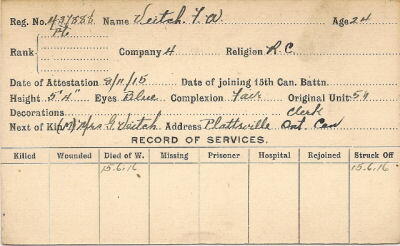 Reg. No. 437556 Name Veitch. F. W. Age 24
Rank Pte Company 4 Religion R.C.
Date of Attestation 8/11/15 Date of joining 15th Can. Battn.
Height 5'4" Eyes Blue Complexion Fair Original Unit 51
Decorations Clerk
Next of Kin (M) Mrs G. Veitch Address Plattsville Ont. Can
RECORD OF SERVICES.
Killed Wounded Died of W. Missing Prisoner Hospital Rejoined Struck Off
15.6.16 15.6.16